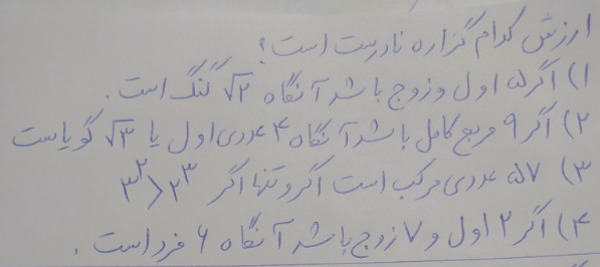 ارزش کدام گزاره نادرست است؟
۱) اگر ۵ اول و زوج باشد آنگاه √۲ گنگ است.
۲) اگر ۹ مربع کامل باشد آنگاه ۴ عددی اول یا √۳ گویاست
۳) ۵۷ عددی مرکب است اگر و تنها اگر ۳^۲ < ۲^۳
۴) اگر ۲ اول و ۷ زوج باشد آنگاه ۶ فرد است.